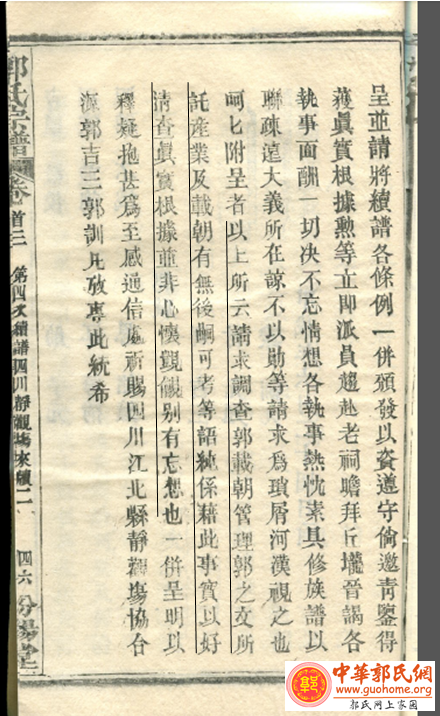 呈並請將續譜各條例一併頒發以資遵守倘邀青鑒得
獲眞實根據勲等立即派員趨赴老祠瞻拜丘壠晉謁各
執事面酬一切决不忘情想各執事熱忱素具修族譜以
聯疎遠大義所在諒不以勛等請求爲瑣屑河漢視之也
呵匕附呈者以上所云請求調查郭載朝管理郭之交所
託産業及載朝有無後嗣可考等語純係藉此事實以好
淸查眞實根據並非心懷覬覦别有忘想也一併呈明以
釋疑抱甚爲至感通信處祈賜四川江北縣靜觀塲協台
源郭吉三郭訓凡攷專此統希
郭氏宗譜
卷首三
第四次續譜四川靜觀塲來牘二
四六
汾陽堂
中華郭氏網
www.guohome.org
郭氏网上家園